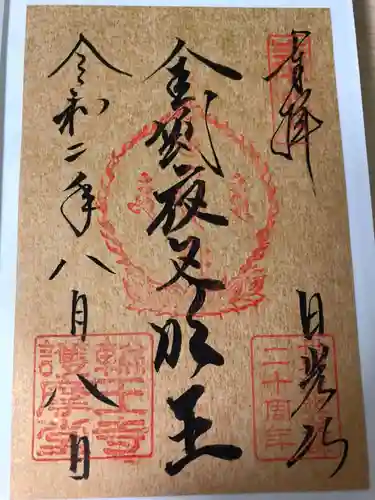 奉拝
日光山
金剛夜叉明王
令和二年八月八日
輪王寺
護摩堂
二十周年